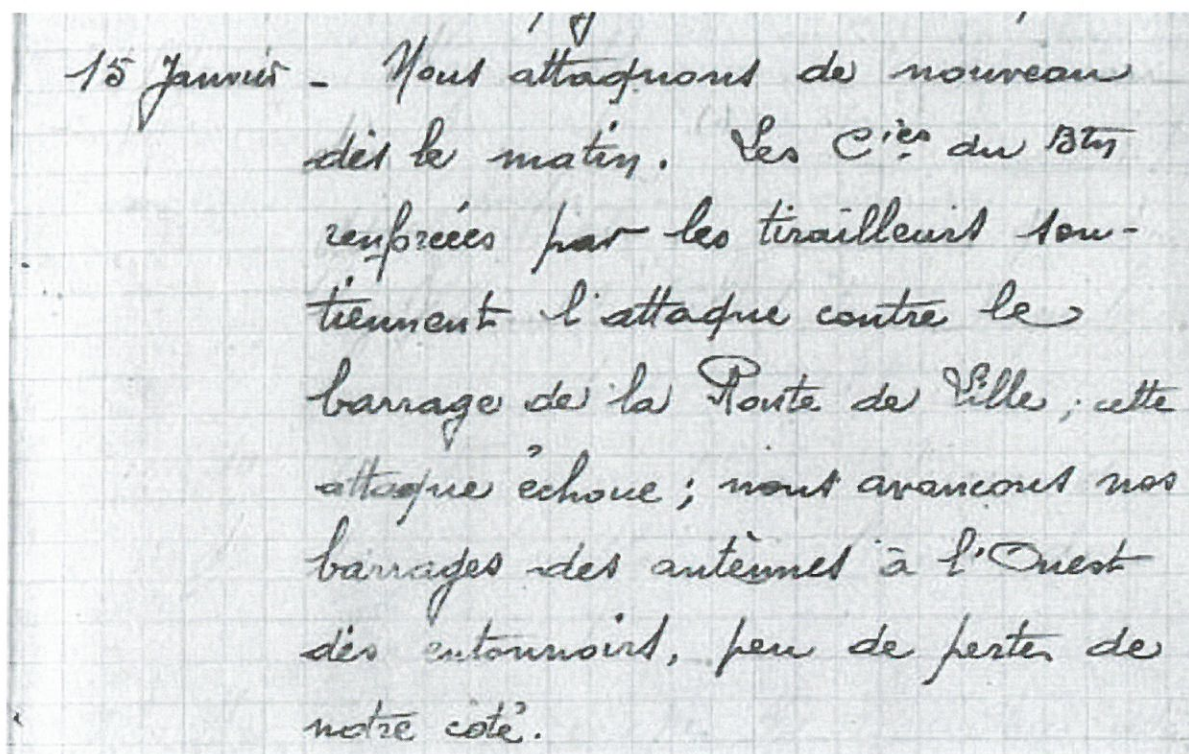 15 Janvier - Nous attaquons de nouveau
dès le matin. Les Cies du Btn
renforcées par les tirailleurs sou-
tiennent l'attaque contre le
barrage de la Route de Lille ; cette
attaque échoue ; nous avancons nos
barrages des antènnes à l'Ouest
des entonnoirs, peu de pertes de
notre coté.